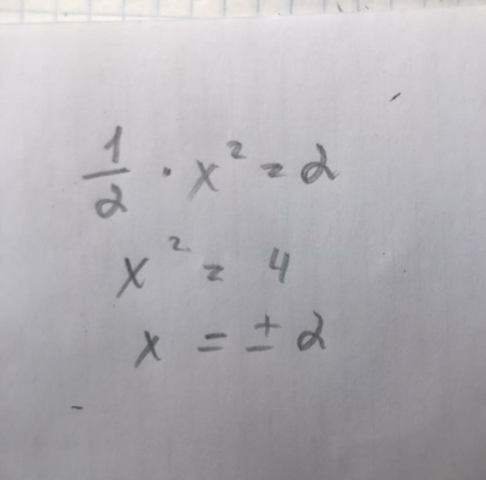 1/2 · x² = 2
x² = 4
x = ± 2